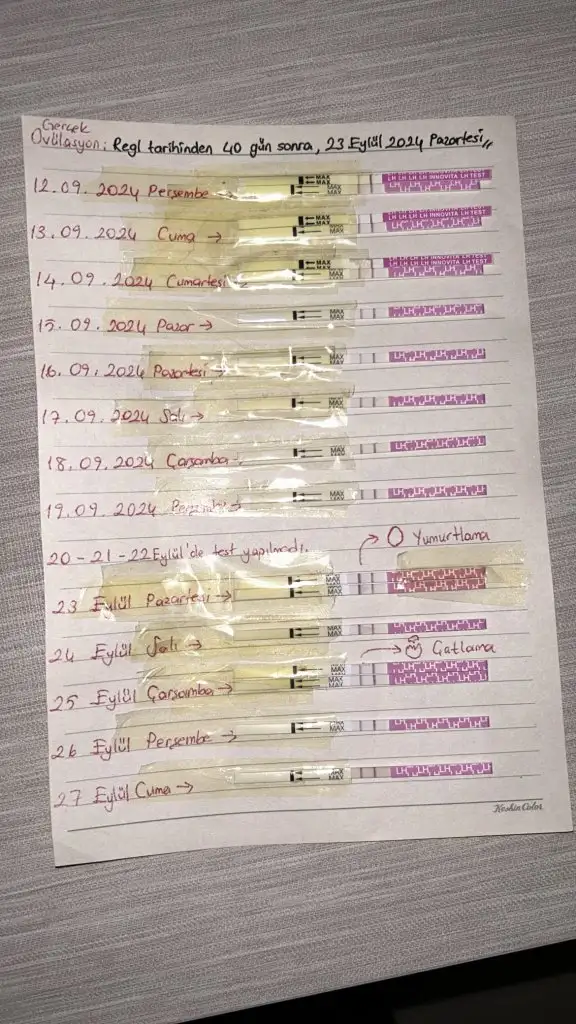 Gerçek
Ovülasyon: Regl tarihinden 40 gün sonra, 23 Eylül 2024 Pazartesi,,
12.09.2024 Perşembe → MAX MAX MAX MAX LH LH LH LH INNOVITA LH TEST
13.09.2024 Cuma → MAX MAX MAX MAX LH LH LH LH INNOVITA LH TEST
14.09.2024 Cumartesi MAX MAX MAX MAX LH LH LH LH INNOVITA LH TEST
15.09.2024 Pazar → MAX MAX
16.09.2024 Pazartesi → MAX MAX
17.09.2024 Salı → MAX MAX
18.09.2024 Çarşamba MAX
19.09.2024 MAX
20-21-22 Eylül'de test yapılmadı.
Yumurtlama
23 Eylül Pazartesi → MAX MAX
24 Eylül Salı → MAX
Çatlama
25 Eylül Çarşamba → MAX MAX
26 Eylül Perşembe → MAX
27 Eylül Cuma → MAX
Keskin Color